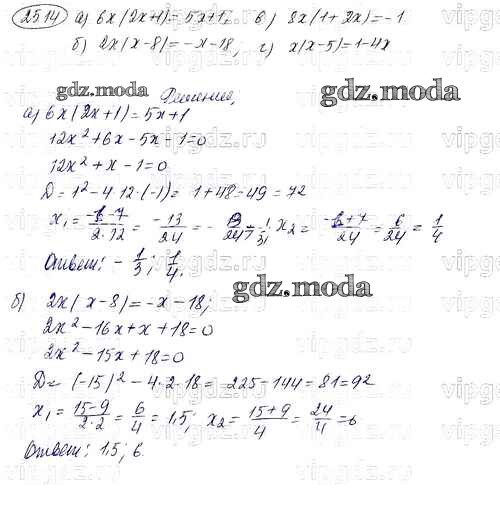 25.14 а) 6x(2x+1)=5x+1; в) 8x(1+2x)=-1
б) 2x(x-8)=-x-18; г) x(x-5)=1-4x
gdz.moda
Решение,
gdz.moda
а) 6x(2x+1)=5x+1
12x²+6x-5x-1=0
12x²+x-1=0
D=1²-4·12·(-1)=1+48=49=7²
x₁= = -13/24 = - x₂= = 6/24 = 1/4
Ответ: -1/3; 1/4.
gdz.moda
б) 2x(x-8)=-x-18;
2x²-16x+x+18=0
2x²-15x+18=0
D=(-15)²-4·2·18=225-144=81=9²
x₁=15-9/2·2=6/4=1,5; x₂=15+9/4=24/4=6
Ответ: 1,5; 6.